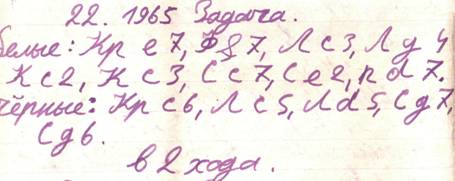 22. 1965 Задача.
белые: Кр е7, Ф g7, Л с3, Л g4
К с2, К с3, С с7, С е2, п d7.
чёрные: Кр с6, Л с5, Л d5, С g7,
С g6.
в 2 хода.